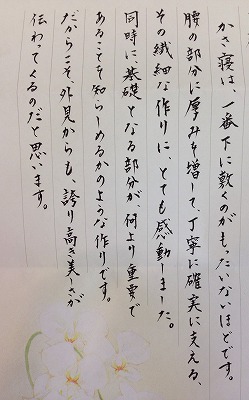 かさ寝は、一番下に敷くのがもったいないほどです。
腰の部分に厚みを増して、丁寧に確実に支える、
その繊細な作りに、とても感動しました。
同時に、基礎となる部分が、何より重要で
あることを知らしめるかのような作りです。
だからこそ、外見からも、誇り高き美しさが
伝わってくるのだと思います。